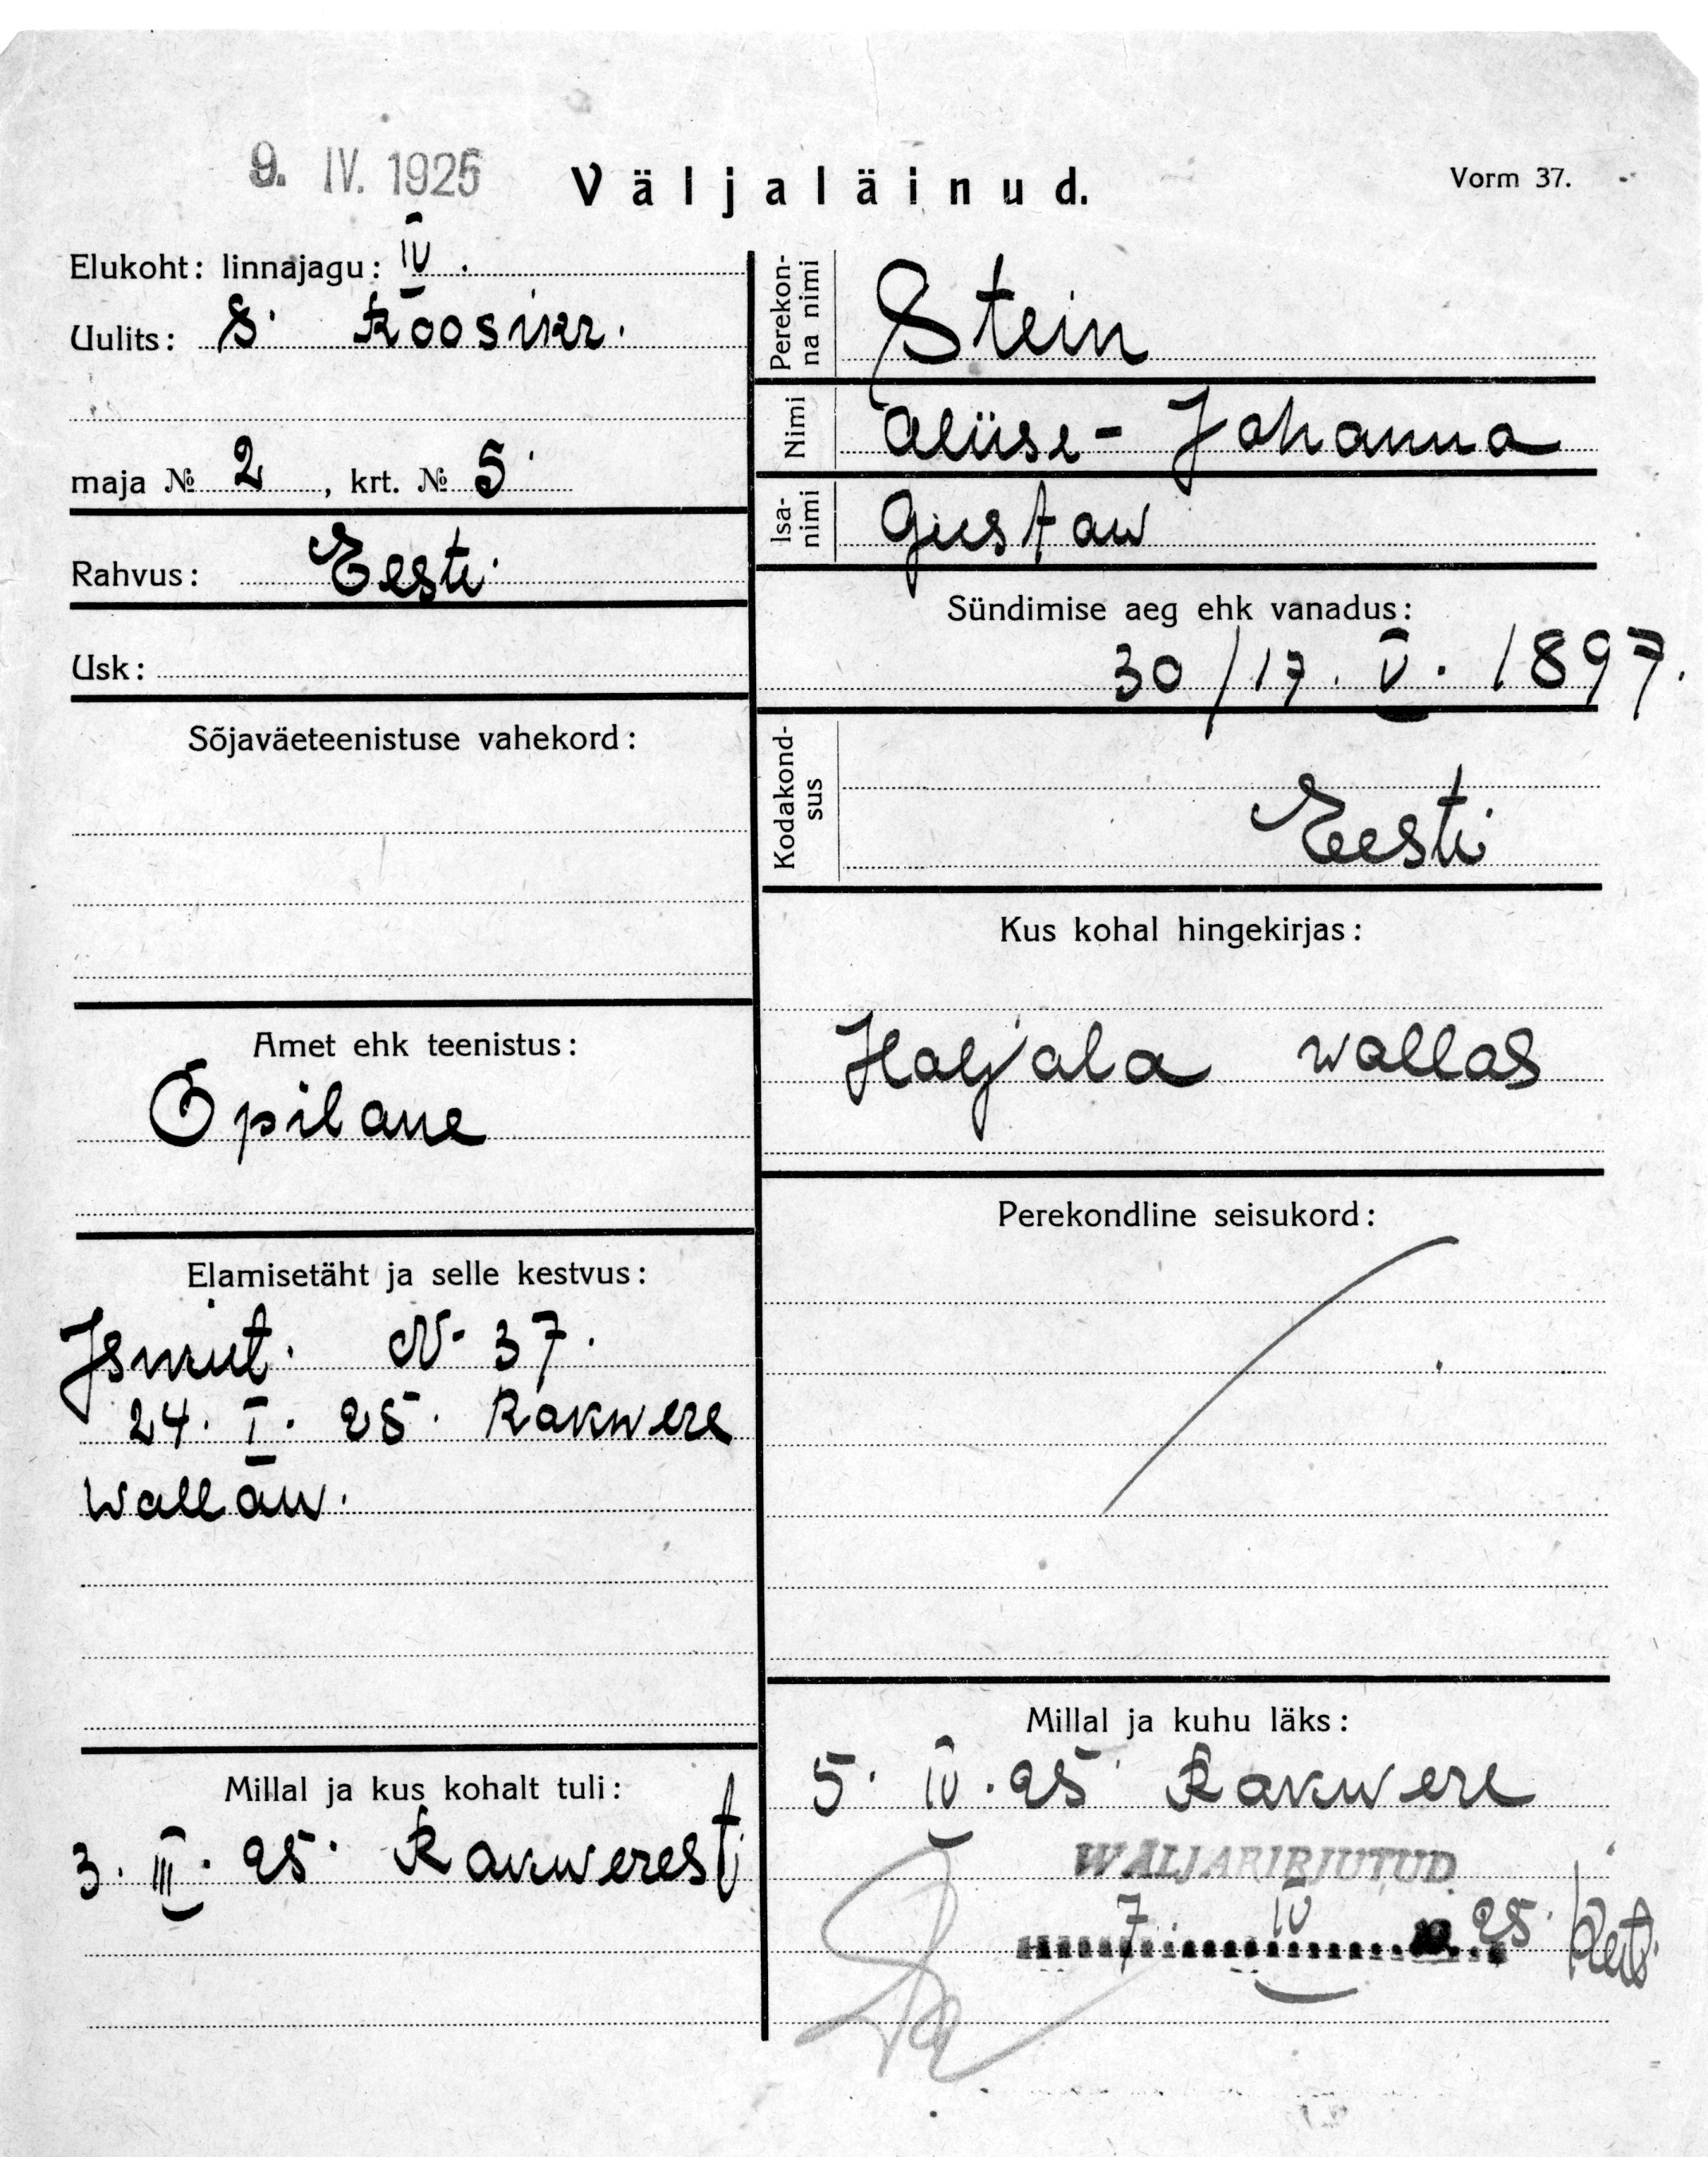 9. IV. 1925
Väljaläinud.
Vorm 37.
Elukoht: linnajagu: IV.
Uulits: S. Roosikr.
maja № 2, krt. № 5
Rahvus: Eesti
Usk:
Sõjaväeteenistuse vahekord:
Amet ehk teenistus:
Õpilane
Elamisetäht ja selle kestvus:
Isnut. N- 37.
24. I. 25. Rakwere
wallaw.
Millal ja kus kohalt tuli:
3. III. 25. Rakwerest
Perekon-
na nimi
Stein
Nimi
Aliise- Johanna
Isa-
nimi
Gustaw
Sündimise aeg ehk vanadus:
30/17. V. 1897.
Kodakond-
sus
Eesti
Kus kohal hingekirjas:
Haljala wallas
Perekondline seisukord:
Millal ja kuhu läks:
5. IV. 25 Rakwere
WÄLJAKIRJUTUD
7 IV 25.